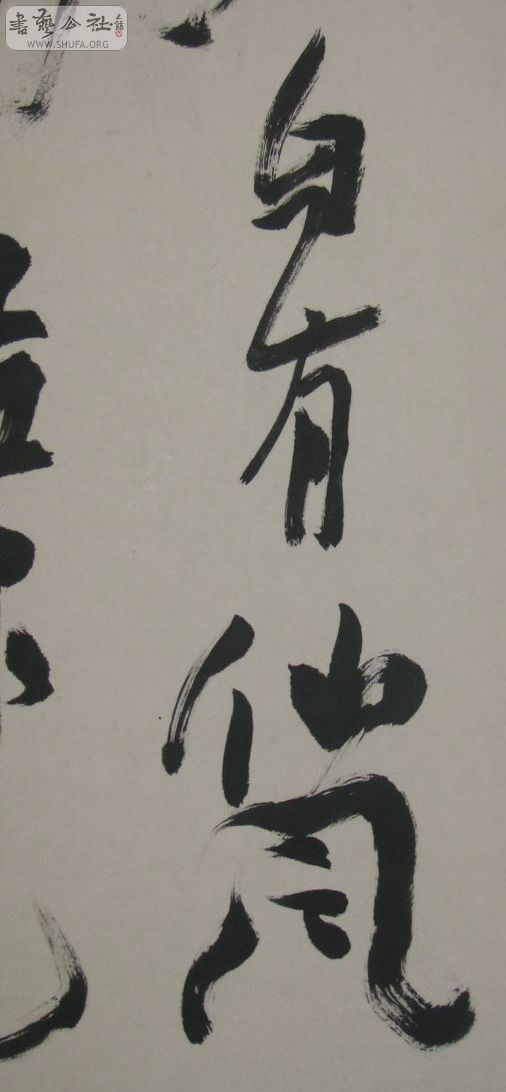 自有仙風
書藝公社
WWW.SHUFA.ORG